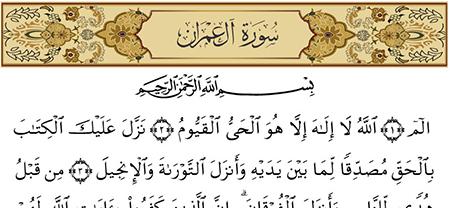 سُورَةُ آلِ عِمْرَانَ
بِسْمِ ٱللَّهِ ٱلرَّحْمَٰنِ ٱلرَّحِيمِ
الٓمٓ ﴿١﴾ ٱللَّهُ لَآ إِلَٰهَ إِلَّا هُوَ ٱلْحَىُّ ٱلْقَيُّومُ ﴿٢﴾ نَزَّلَ عَلَيْكَ ٱلْكِتَٰبَ
بِٱلْحَقِّ مُصَدِّقًا لِّمَا بَيْنَ يَدَيْهِ وَأَنزَلَ ٱلتَّوْرَىٰةَ وَٱلْإِنجِيلَ ﴿٣﴾ مِن قَبْلُ